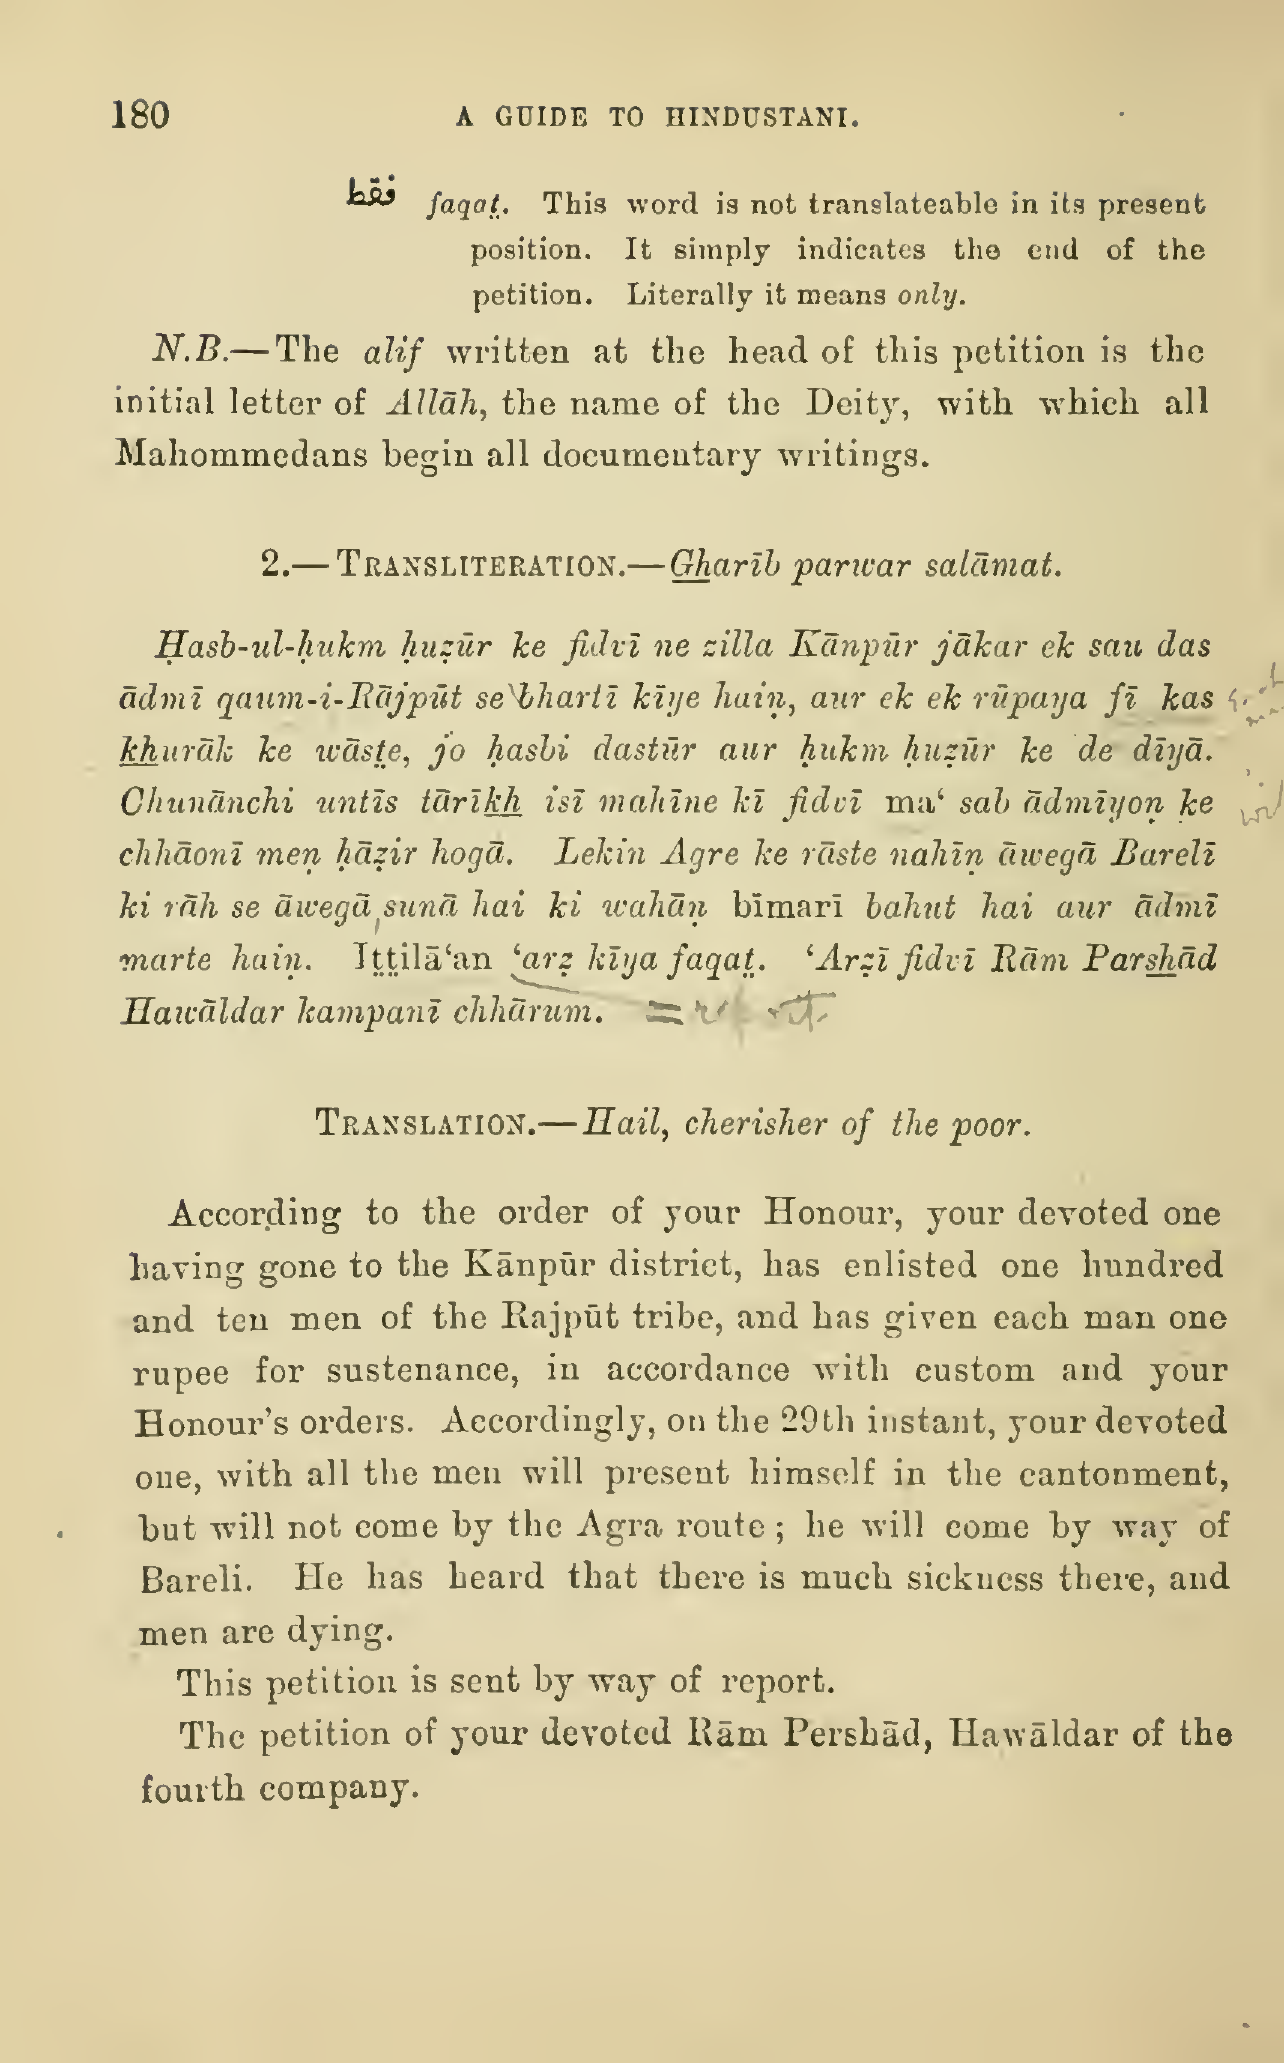 180 A GUIDE TO HINDUSTANI.
فقط faqaṯ. This word is not translateable in its present
position. It simply indicates the end of the
petition. Literally it means only.
N.B.—The alif written at the head of this petition is the
initial letter of Allāh, the name of the Deity, with which all
Mahommedans begin all documentary writings.
2.—TRANSLITERATION.—Gharīb parwar salāmat.
Ḥasb-ul-ḥukm ḥuẓūr ke fidvī ne zilla Kānpūr jākar ek sau das
ādmī qaum-i-Rājpūt se bhartī kīye haiṇ, aur ek ek rūpaya fī kas
khurāk ke wāsṯe, jo ḥasbi dastūr aur ḥukm ḥuẓūr ke de dīyā.
Chunānchi untīs tārīkh isī mahīne kī fidvī ma‘ sab ādmīyoṇ ke
chhāonī meṇ ḥāẓir hogā. Lekin Agre ke rāste nahīṇ āwegā Barelī
ki rāh se āwegā sunā hai ki wahāṇ bīmarī bahut hai aur ādmī
marte haiṇ. Iṯṯilā‘an ‘arẓ kīya faqaṯ. ‘Arẓī fidvī Rām Parshād
Hawāldar kampanī chhārum. =
TRANSLATION.—Hail, cherisher of the poor.
According to the order of your Honour, your devoted one
having gone to the Kānpūr district, has enlisted one hundred
and ten men of the Rajpūt tribe, and has given each man one
rupee for sustenance, in accordance with custom and your
Honour's orders. Accordingly, on the 29th instant, your devoted
one, with all the men will present himself in the cantonment,
but will not come by the Agra route; he will come by way of
Bareli. He has heard that there is much sickness there, and
men are dying.
This petition is sent by way of report.
The petition of your devoted Rām Pershād, Hawāldar of the
fourth company.